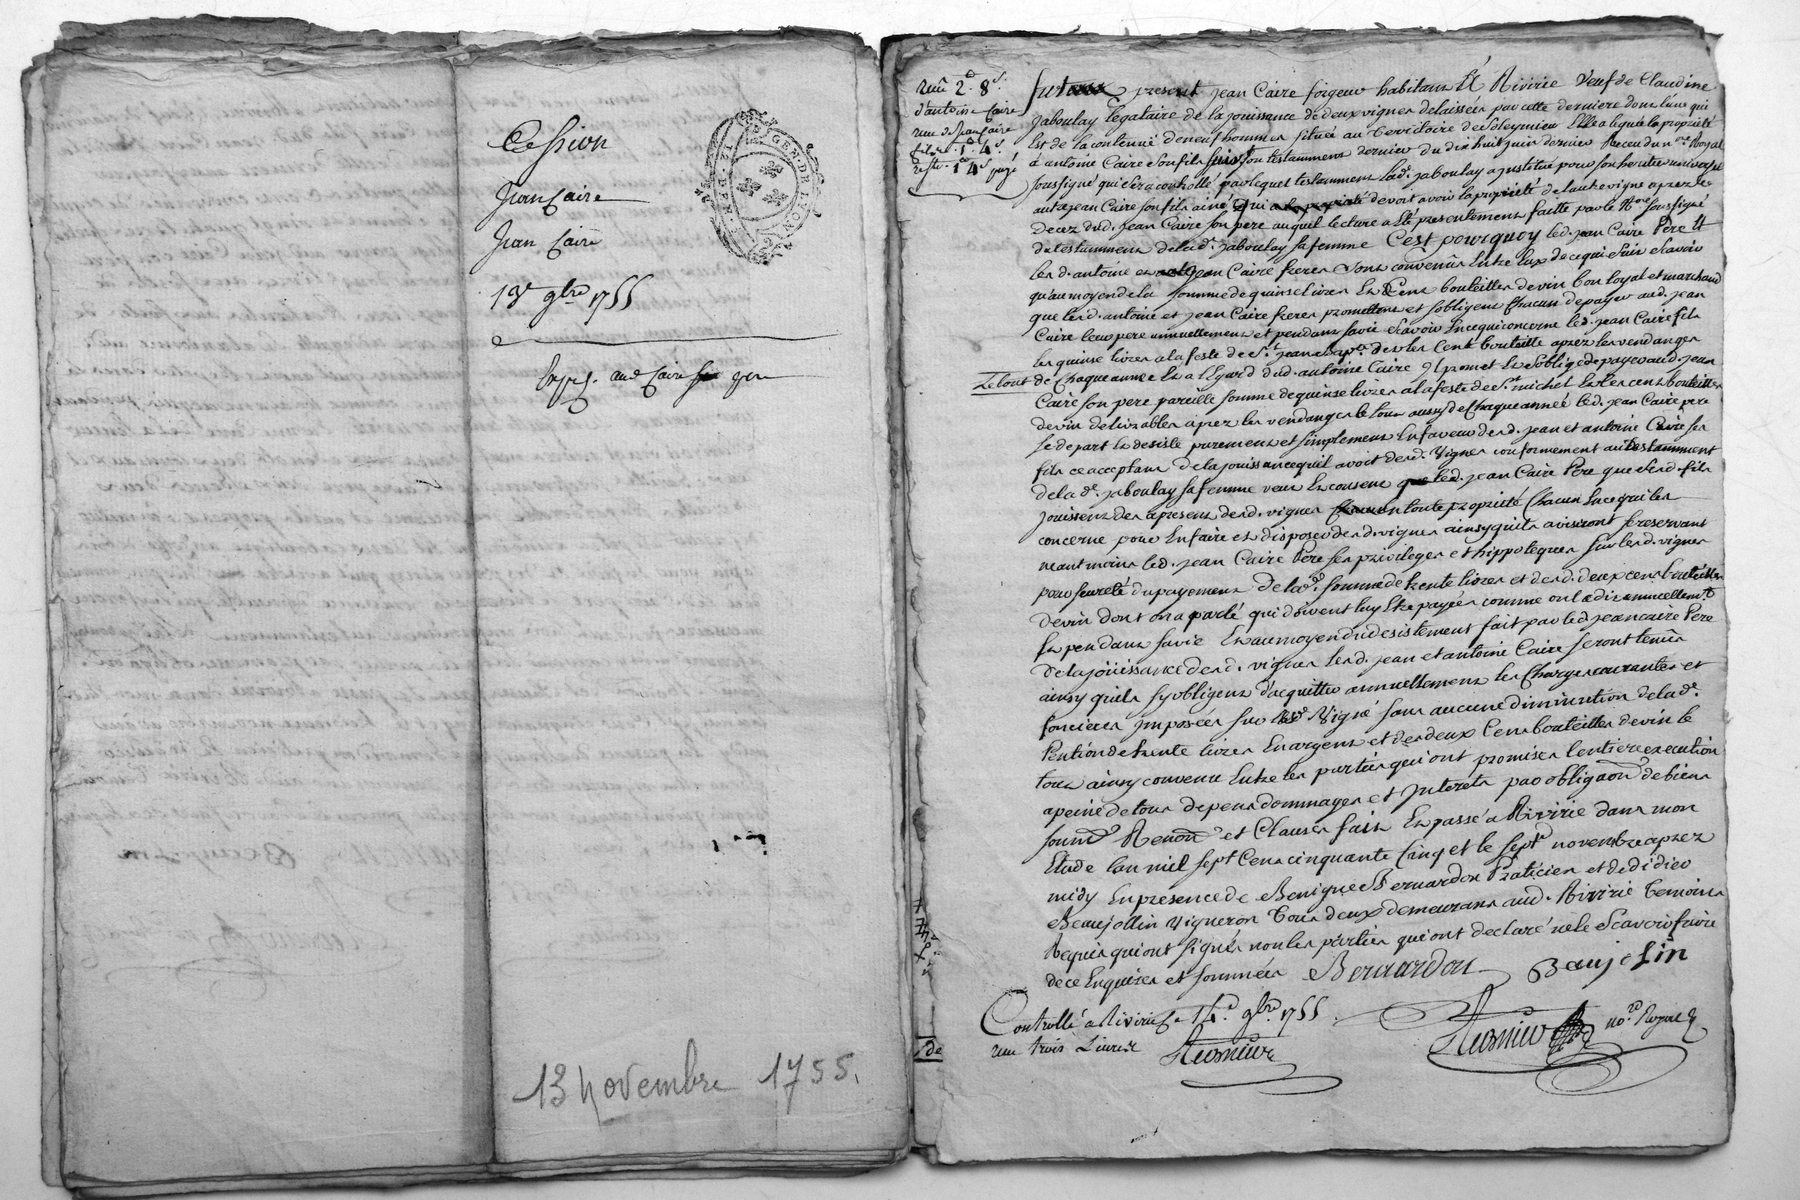 Cession
Jean Caire
Jean Caire
13e 9bre 1755
GEN. DE LYON
13 novembre 1755.
reçu 2ᵈ 8ˢ
d'antoine Caire
reçu de Jean Caire
fils 1ᵈ 4ˢ
reste 1ᵈ 4ˢ payé
fut present jean Caire forgeur habitant à Rivirie veuf de Claudine
jaboulay legataire de la jouissance de deux vignes delaissées par cette derniere dont lune qui
est de la contenüe de neuf hommes située au Territoire de Soleymieu Elle a legué la propriété
à antoine Caire son fils suivt son testamment dernier du dix huit juin dernier Receu du nre Royal
soussigné qui sera controllé par lequel testamment lad. jaboulay a justitué pour son heritier universel
autre jean Caire son fils ainé qui devoit avoir la propriété de lautre vigne aprez le
decez dud. jean Caire son pere auquel lecture a Eté presentement faitte par le Nre soussigné
du testamment de lad. jaboulay sa femme C'est pourquoy led. jean Caire Pere et
lesd. antoine et jean Caire freres sont convenus Entre Eux de ce qui suit scavoir
qu'au moyen de la somme de quinse livres Et Cent bouteilles de vin bon loyal et marchand
que lesd. antoine et jean Caire freres promettent et s'obligent Chacun de payer aud. jean
Caire leur pere annuellement et pendant sa vie scavoir En ce qui concerne led. jean Caire fils
les quinse livres a la feste de St jean bapte et les Cent bouteille aprez les vendanges
Le tout de Chaque année Et a l'Egard dud. antoine Caire Jl promet Et s'oblige de payer aud. jean
Caire son pere pareille somme de quinse livres a la feste de St michel Et les cent bouteilles
de vin delivrables aprez les vendanges le tout aussy de Chaque année led. jean Caire pere
se depart Et desiste purement et simplement En faveur desd. jean et antoine Caire ses
fils ce acceptant de la jouissance quil avoit desd. vignes conformement au testamment
de lad. jaboulay sa femme veut Et consent led. jean Caire Pere que sesd. fils
jouissent dez apresent desd. vignes En toute propriété Chacun En ce qui les
concerne pour En faire et disposer desd. vignes ainsy quils aviseront se reservant
neantmoins led. jean Caire Pere ses privileges et hippoteques sur lesd. vignes
pour seureté du payement de lad. somme de trente livres et desd. deux cens bouteilles
de vin dont on a parlé qui doivent luy Etre payées comme on l'a dit annuellemt
Et pendant sa vie Et au moyen du desistement fait par led. jean caire Pere
de la joüissance desd. vignes lesd. jean et antoine Caire seront tenûs
ainsy quils sy obligent d'acquitter annuellement les Charges courantes et
foncieres jmposées sur lesd. Vigne sans aucune diminution de lade
Pention de trente livres En argent et des deux Cens bouteilles de vin le
tout ainsy convenu Entre les parties qui ont promises l'entiere execution
a peine de tous depens dommages et Jnterets par obligaon de biens
soumon Renon et Clauses fait Et passé a Rivirie dans mon
Etude lan mil sept Cens cinquante Cinq et le sept novembre aprez
midy En presence de Benigne Bernardon Praticien et de didier
Beaujollin vigneron Tous deux demeurans aud. Rivirie Temoins
Requis qui ont signés non les parties qui ont declaré ne le scavoir faire
de ce Enquises et sommées Bernardon Beaujolin
Controllé a Rivirie le 14e 9bre 1755
reçu trois Livres
nore Royal